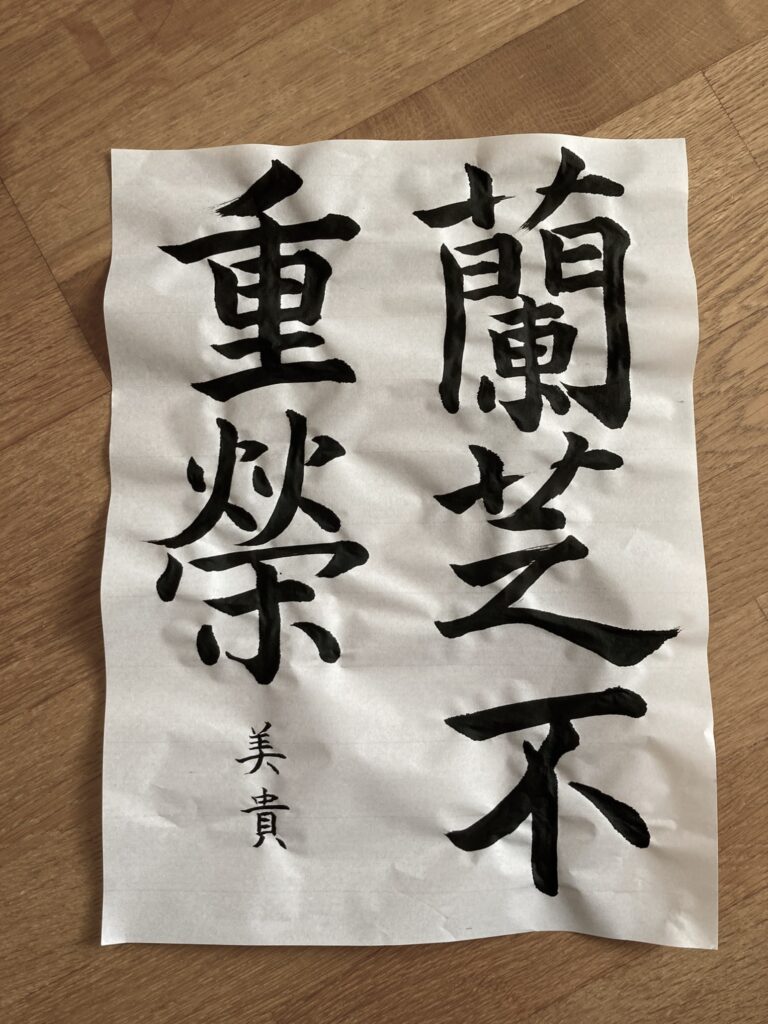 蘭芝不
重榮
美貴